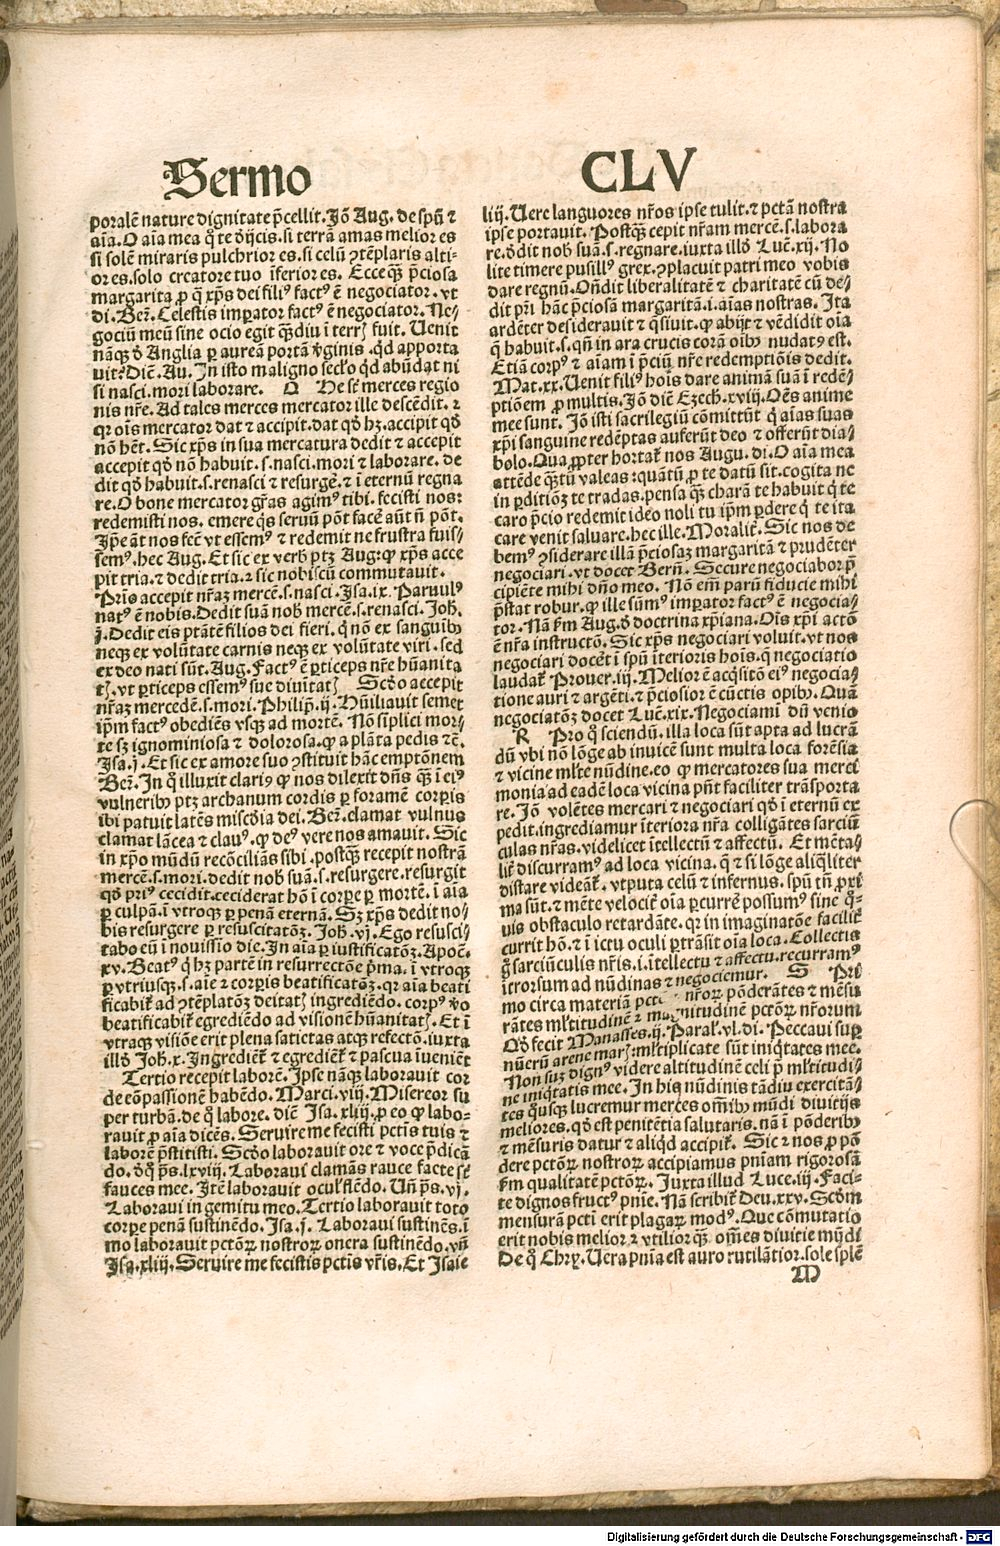 Sermo CLV
poralē nature dignitate p̄cellit. Jō Aug. de spū ⁊
aīa. O aīa mea q̊ te ꝺijcis. si terrā amas melior es
si solē miraris pulchrior es. si celū ꝯtēplaris alti-
or es. solo creatore tuo īferior es. Ecce qꝫ p̄ciosa
margarita ꝓ q̄ xp̄s dei filiꝰ factꝰ ē negociator. vt
di. Ber̄. Celestis imꝑator factꝰ ē negociator. Ne-
gociū meū sine ocio egit qꝫdiu ī terrꝭ fuit. Uenit
nāqꝫ ꝺ Anglia ꝑ aureā portā v̓ginis. qd̓ apporta
vit? Diē. Au. In isto maligno secl̓o qd̓ abūdat ni
si nasci. mori laborare. Q He sē merces regio
nis nr̄e. Ad tales merces mercator ille descēdit. ⁊
qꝛ oīs mercator dat ⁊ accipit. dat qd̓ hꝫ. accipit qd̓
nō hēt. Sic xp̄s in sua mercatura dedit ⁊ accepit
accepit qd̓ nō habuit. s. nasci. mori ⁊ laborare. de
dit qd̓ habuit. s. renasci ⁊ resurgē. ⁊ ī eternū regna
re. O bone mercator gr̄as agimꝰ tibi. fecisti nos:
redemisti nos. emere q̄s seruū pōt facē aūt n̄ pōt.
Ip̄e āt nos fec̄ vt essemꝰ ⁊ redemit ne frustra fuis-
semꝰ. hec Aug. Et sic ex verb̓ ptꝫ Aug. ꝙ xp̄s acce
pit tria. ⁊ dedit tria. ⁊ sic nobiscū commutauit.
Prīs accepit nr̄aꝫ mercē. s. nasci. Isa. ix. Paruulꝰ
natꝰ ē nobis. Dedit suā nob̓ mercē. s. renasci. Joh̓.
j. Dedit eis ptātē filios dei fieri. q̓ nō ex sanguībꝰ
neqꝫ ex volūtate carnis neqꝫ ex volūtate viri. sed
ex deo nati sūt. Aug. Factꝰ ē ꝑticeps nr̄e hūanita
tꝭ. vt ꝑticeps essemꝰ sue diuītatꝭ Scd̓o accepit
nr̄aꝫ mercedē. s. mori. Philip̄. ij. Hūiliauit semet
ip̄m factꝰ obediēs vsqꝫ ad mortē. Nō sīplici mor-
te sꝫ ignominiosa ⁊ dolorosa. ꝙ a plāta pedis ⁊c̄.
Isa. j. Et sic ex amore suo ꝯstituit hāc emptōnem
Ber̄. In q̊ illuxit clariꝰ ꝙ nos dilexit dn̄s qꝫ ī eiꝰ
vulneribꝰ ptꝫ archanum cordis ꝑ foramē corꝑis
ibi patuit latēs misc̄dīa dei. Ber̄. clamat vulnus
clamat lācea ⁊ clauꝰ. ꝙ deꝰ vere nos amauit. Sic
in xp̄o mūdū recōciliās sibi. postqꝫ recepit nostrā
mercē. s. mori. dedit nob̓ suā. s. resurgere. resurgit
qd̓ priꝰ cecidit. ceciderat hō ī corꝑe ꝑ mortē. ī aīa
ꝑ culpā. ī vtroqꝫ ꝑ penā eternā. Sꝫ xp̄s dedit no-
bis resurgere ꝑ resuscitatōꝫ. Joh̓. vj. Ego resusci-
tabo eū ī nouissīo die. In aīa ꝑ iustificatōꝫ. Apoc̄.
xv. Beatꝰ q̓ hꝫ partē in resurrectōe p̄ma. ī vtroqꝫ
ꝑ vtriusqꝫ. s. aīe ⁊ corꝑis beatificatōꝫ. qꝛ aīa beati
ficabit̄ ad ꝯtēplatōꝫ deitatꝭ ingrediēdo. corpꝰ v̓o
beatificabit̄ egrediēdo ad visionē hūanitatꝭ. Et ī
vtraqꝫ visiōe erit plena satietas atqꝫ refectō. iuxta
illd̓ Joh̓. x. Ingrediēt̄ ⁊ egrediēt̄ ⁊ pascua īueniēt
Tertio recepit laborē. Ipse nāqꝫ laborauit cor
de cōpassionē habēdo. Marci. viij. Misereor su
per turbā. de q̊ labore. diē Isa. xliij. ꝓ eo ꝙ labo-
rauit ꝓ aīa dicēs. Seruire me fecisti pctīs tuis ⁊
laborē p̄stitisti. Scd̓o laborauit ore ⁊ voce p̄dicā
do. ꝺ q̊ p̄s. lxviij. Laboraui clamās rauce facte sē
fauces mee. Itē laborauit oculꝰ flēdo. Un̄ p̄s. vj.
Laboraui in gemitu meo. Tertio laborauit toto
corꝑe penā sustinēdo. Isa. j. Laboraui sustinēs. ī
mo laborauit pctōꝝ nostroꝝ onera sustinēdo. vn̄
Isa. xliij. Seruire me fecistis pctīs vr̄is. Et Isaie
liij. Uere languores nr̄os ipse tulit. ⁊ pctā nostra
ipse portauit. Postqꝫ cepit nr̄am mercē. s. labora
re. ꝺdit nob̓ suā. s. regnare. iuxta illd̓ Luc̄. xij. No
lite timere pusillꝰ grex. ꝯplacuit patri meo vobis
dare regnū. On̄dit liberalitatē ⁊ charitatē cū de-
dit pr̄i hāc p̄ciosā margaritā. i. aīas nostras. Ita
ardēter desiderauit ⁊ q̄siuit. ꝙ abijt ⁊ vēdidit oīa
q̄ habuit. s. qn̄ in ara crucis corā oībꝰ nudatꝰ est.
Etiā corpꝰ ⁊ aīam ī p̄ciū nr̄e redemptiōis dedit.
Mat. xx. Uenit filiꝰ hoīs dare animā suā ī redē-
ptiōem ꝓ multis. Jō diē Ezech. xviij. Oēs anime
mee sunt. Jō isti sacrilegiū cōmittūt q̓ aīas suas
xp̄i sanguine redēptas auferūt deo ⁊ offerūt dia-
bolo. Qua ꝓpter hortat̄ nos Augu. di. O aīa mea
attēde qꝫtū valeas: quātū ꝓ te datū sit. cogita ne
in ꝑditiōꝫ te tradas. pensa qꝫ charā te habuit q̓ te
caro p̄cio redemit ideo noli tu ip̄m ꝑdere q̓ te ita
care venit saluare. hec ille. Moralit̄. Sic nos de
bemꝰ ꝯsiderare illā p̄ciosaꝫ margaritā ⁊ prudēter
negociari. vt docet Berñ. Secure negociabor p̄
cipiēte mihi dn̄o meo. Nō em̄ parū fiducie mihi
p̄stat robur. ꝙ ille sūmꝰ imꝑator factꝰ ē negocia-
tor. Nā ẜm Aug. ꝺ doctrina xp̄iana. Oīs xp̄i actō
ē nr̄a instructō. Sic xp̄s negociari voluit. vt nos
negociari docēt ī spū īterioris hoīs. q̄ negociatio
laudat̄ Prouer. iij. Melior ē acq̓sitō eiꝰ negocia-
tione auri ⁊ argēti. ⁊ p̄ciosior ē cūctis opibꝰ. Quā
negociatōꝫ docet Luc̄. xix. Negociamī dū venio
R Pro q̊ sciendū. illa loca sūt apta ad lucrā
dū vbi nō lōge ab inuicē sunt multa loca forēsia
⁊ vicine ml̓te nūdine. eo ꝙ mercatores sua merci
monia ad eadē loca vicina pn̄t faciliter trāsporta
re. Jō volētes mercari ⁊ negociari qd̓ ī eternū ex
pedit. ingrediamur īteriora nr̄a colligātes sarciū
culas nr̄as. videlicet ītellectū ⁊ affectū. Et mēta-
lit̄ discurramꝰ ad loca vicina. q̄ ⁊ si lōge aliq̓liter
distare videāt̄. vtputa celū ⁊ infernus. spū tn̄ ꝓxi
ma sūt. ⁊ mēte velocit̄ oīa ꝑcurrē possumꝰ sine q̊-
uis obstaculo retardāte. qꝛ in imaginatōe facilit̄
currit hō. ⁊ ī ictu oculi ꝑtrāsit oīa loca. Collectis
ḡ sarciūculis nr̄is. i. ītellectu ⁊ affectu. recurramꝰ
īterorsum ad nūdinas ⁊ negociemur. S Pri
mo circa materiā pctō nr̄oꝝ pōderātes ⁊ mēsu
rātes ml̓titudinē ⁊ magnitudinē pctōꝝ nr̄orum
Qd̓ fecit Manasses. ij. Paral̓. vl. di. Peccaui suꝑ
nūerū arene marꝭ: ml̓tiplicate sūt iniq̓tates mee.
Non suꝫ dignꝰ videre altitudinē celi p̄ ml̓titudi-
ne iniq̓tatis mee. In his nūdinis tādiu exercitā-
tes quiſqꝫ lucremur merces om̄ibꝰ mūdi diuitijs
meliores. qd̓ est penitētia salutaris. nā ī pōderibꝰ
⁊ mēsuris datur ⁊ aliqd̓ accipit̄. Sic ⁊ nos ꝓ pō
dere pctōꝝ nostroꝝ accipiamus pn̄iam rigorosā
ẜm qualitatē pctōꝝ. Juxta illud Luce. iij. Faci-
te dignos fructꝰ pn̄ie. Nā scribit̄ Deu. xxv. Scd̓m
mensurā pcti erit plagaꝝ modꝰ. Que cōmutatio
erit nobis melior ⁊ vtilior qꝫ om̄es diuitie mūdi
De q̊ Chry. Uera pn̄ia est auro rutilātior. sole splē
M
Digitalisierung gefördert durch die Deutsche Forschungsgemeinschaft - DFG